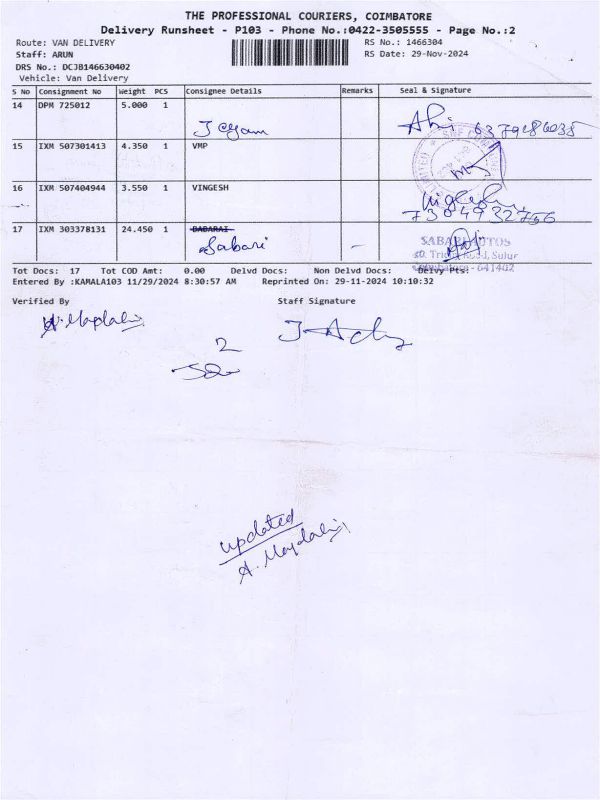 THE PROFESSIONAL COURIERS, COIMBATORE
Delivery Runsheet - P103 - Phone No.:0422-3505555 - Page No.:2
Route: VAN DELIVERY RS No.: 1466304
Staff: ARUN RS Date: 29-Nov-2024
DRS No.: DCJB146630402
Vehicle: Van Delivery
S No Consignment No Weight PCS Consignee Details Remarks Seal & Signature
14 DPM 725012 5.000 1
Jeyam 6379186035
15 IXM 507301413 4.350 1 VMP
16 IXM 507404944 3.550 1 VINGESH
7304932756
17 IXM 303378131 24.450 1 BABARAI
Sabari - SABARI AUTOS
Road, Sulur
Coimbatore - 641402
Tot Docs: 17 Tot COD Amt: 0.00 Delvd Docs: Non Delvd Docs: Delvy Pts:
Entered By :KAMALA103 11/29/2024 8:30:57 AM Reprinted On: 29-11-2024 10:10:32
Verified By Staff Signature
2
updated